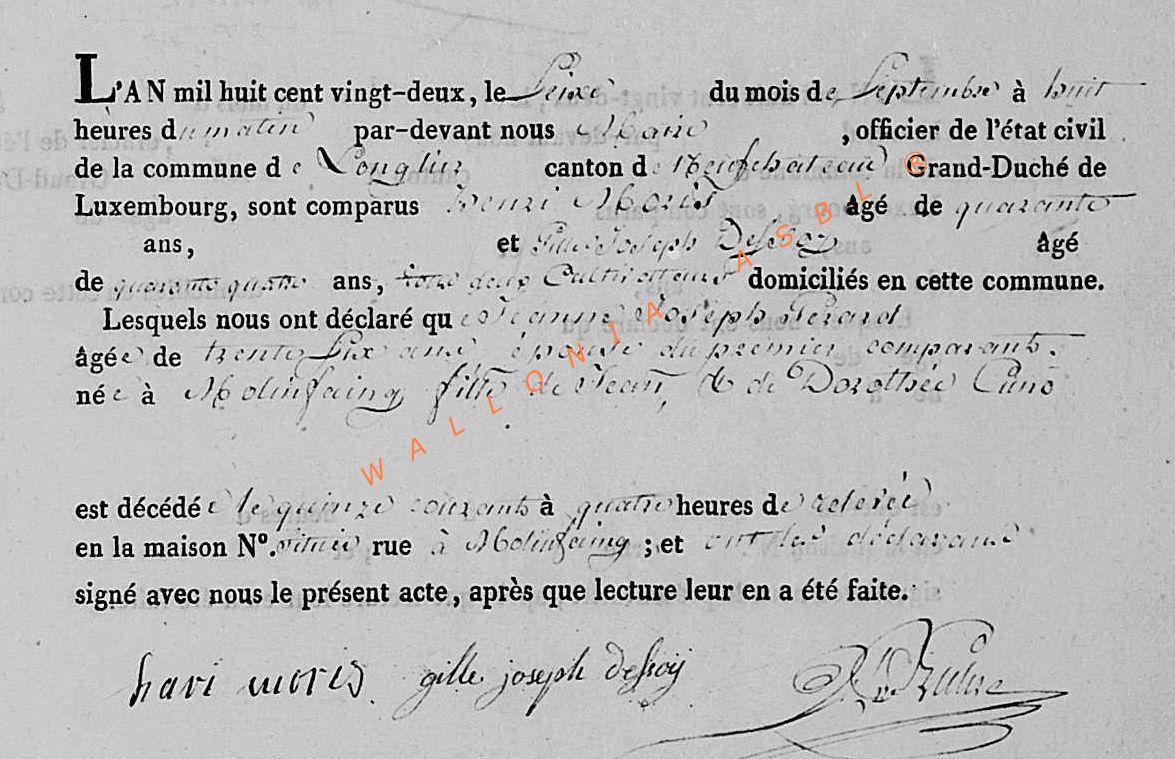 L'AN mil huit cent vingt-deux, le Seize du mois de Septembre à huit
heures du matin par-devant nous Maire, officier de l'état civil
de la commune de Longlier canton de Neufchâteau Grand-Duché de
Luxembourg, sont comparus henri Moris âgé de quarante
ans, et Gille Joseph Dessoy âgé
de quarante quatre ans, tous deux Cultivateurs domiciliés en cette commune.
Lesquels nous ont déclaré que Jeanne Joseph Gerard
âgée de trente Six ans, épouse du premier comparant.
née à Molinfaing fille de Jean, & de Dorothée Cuno
est décédée le quinze courant à quatre heures de relevée
en la maison N°. située rue à Molinfaing ; et ont les déclarans
signé avec nous le présent acte, après que lecture leur en a été faite.
hari moris gille joseph dessoij
WALLONIA ASBL ®